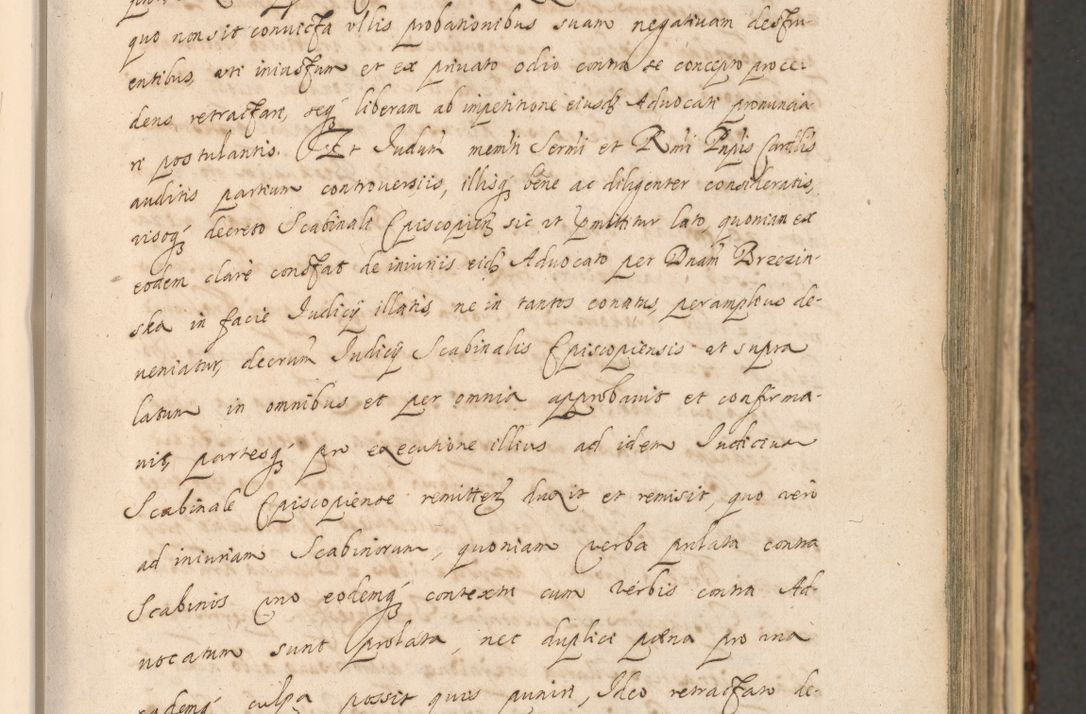 quo non sit convicta ullis probationibus suam negativam destru-
entibus, uti iniustum et ex privato odio contra se concepto proce-
dens retractari, seq3 liberam ab impetitione eiusd Advocati pronuncia-
ri postulantis. Et Iudiu memti Sermi et Rmi Pnpis Cardlis
auditis partium controversiis, illisq3 bene ac diligenter consideratis,
visoq3 decreto Scabinali Episcopien sic ut pmittitur lato, quoniam ex
eodem clare constat de iniuriis eid Advocato per Dnam Brzezin-
ska in facie Iudicij illatis, ne in tantos conatus, peramplius de-
veniatur, decrum Iudicij Scabinalis Episcopiensis ut supra
latum in omnibus et per omnia approbavit et confirma-
vit, partesq3 pro executione illius ad idem Iudicium
Scabinale Episcopiense remitten duxit et remisit, quo vero
ad iniuriam Scabinorum, quoniam verba prolata contra
Scabinos uno eodemq3 contextu cum verbis contra Ad-
vocatum sunt prolata, nec duplici pœna pro una
eademq3 culpa possit quis puniri, Ideo retractato de-